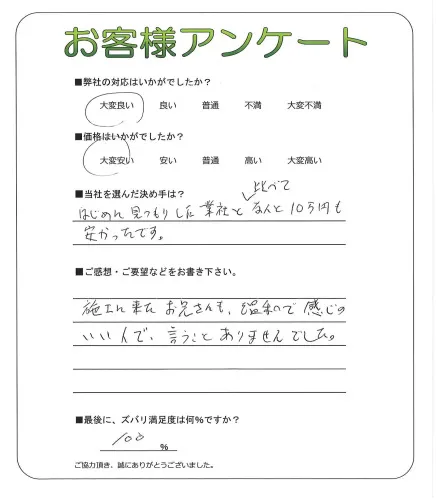 お客様アンケート
■弊社の対応はいかがでしたか？
大変良い 良い 普通 不満 大変不満
■価格はいかがでしたか？
大変安い 安い 普通 高い 大変高い
■当社を選んだ決め手は？
比べて
はじめに見つもりした業社となんと10万円も
安かったです。
■ご感想・ご要望などをお書き下さい。
施工に来たお兄さんも、温和で感じの
いい人で、言うことありませんでした。
■最後に、ズバリ満足度は何%ですか？
100
%
ご協力頂き、誠にありがとうございました。